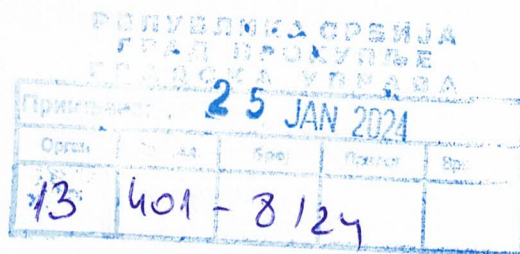 РЕПУБЛИКА СРБИЈА
ГРАД ПРОКУПЉЕ
ГРАДСКА УПРАВА
25 JAN 2024
Орган Број Прилог
13 401 - 8/24